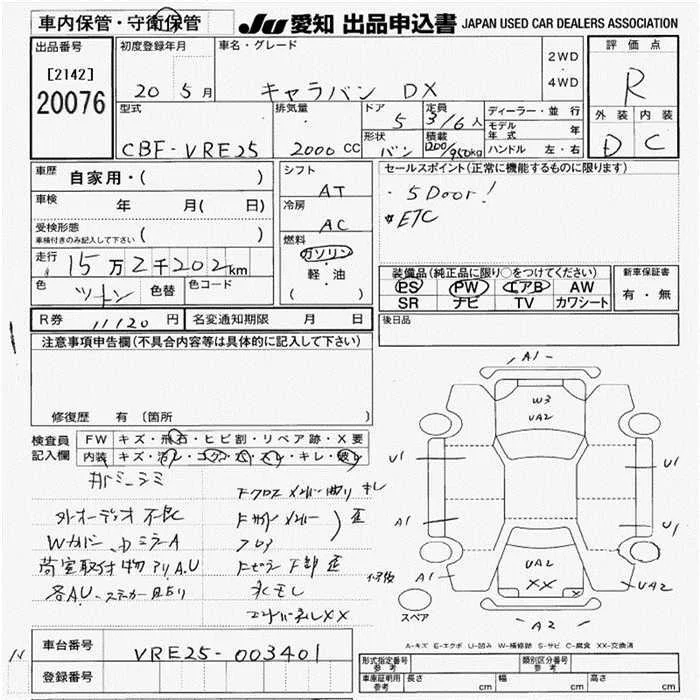 車内保管・守衛保管
JU 愛知 出品申込書 JAPAN USED CAR DEALERS ASSOCIATION
出品番号
[2142]
20076
初度登録年月
20 5月
車名・グレード
キャラバン DX
2WD
・
4WD
評価点
R
外装 内装
D C
型式
CBF-VRE25
排気量
2000 CC
ドア
5
形状
バン
定員
3/6人
積載
1200/950kg
ディーラー・並行
モデル年式 年
ハンドル 左・右
車歴
自家用・( )
車検
年 月( 日)
受検形態
車検付きのみ記入して下さい ( )
走行 15万2千202km
色 ツートン 色替 色コード
シフト
AT
冷房
AC
燃料
ガソリン
・
軽・油
( )
セールスポイント(正常に機能するものに限ります)
・5Door!
ETC
装備品(純正品に限り○をつけてください)
PS PW エアB AW
SR ナビ TV カワシート
新車保証書
有・無
後日品
R券 11120円 名変通知期限 月 日
注意事項申告欄(不具合内容等は具体的に記入して下さい)
修復歴 有〔箇所 〕
検査員
記入欄
FW キズ・飛石・ヒビ割・リペア跡・X要
内装 キズ・汚レ・コゲ・穴・スレ・キレ・破レ
外オーディオ不良
Wカバー
荷室取付物アリA.U
各A.U
A1
W3
UA2
U1
U1
A1
U1
UA2
XX
A1
UA2
A2
スペア
A-キズ E-エクボ U-凹み W-補修跡 S-サビ C-腐食 XX-交換済
車台番号 VRE25-003401
登録番号
形式指定番号
参考
類別区分番号
参考
車庫証明用
参考
長さ cm 幅 cm 高さ cm